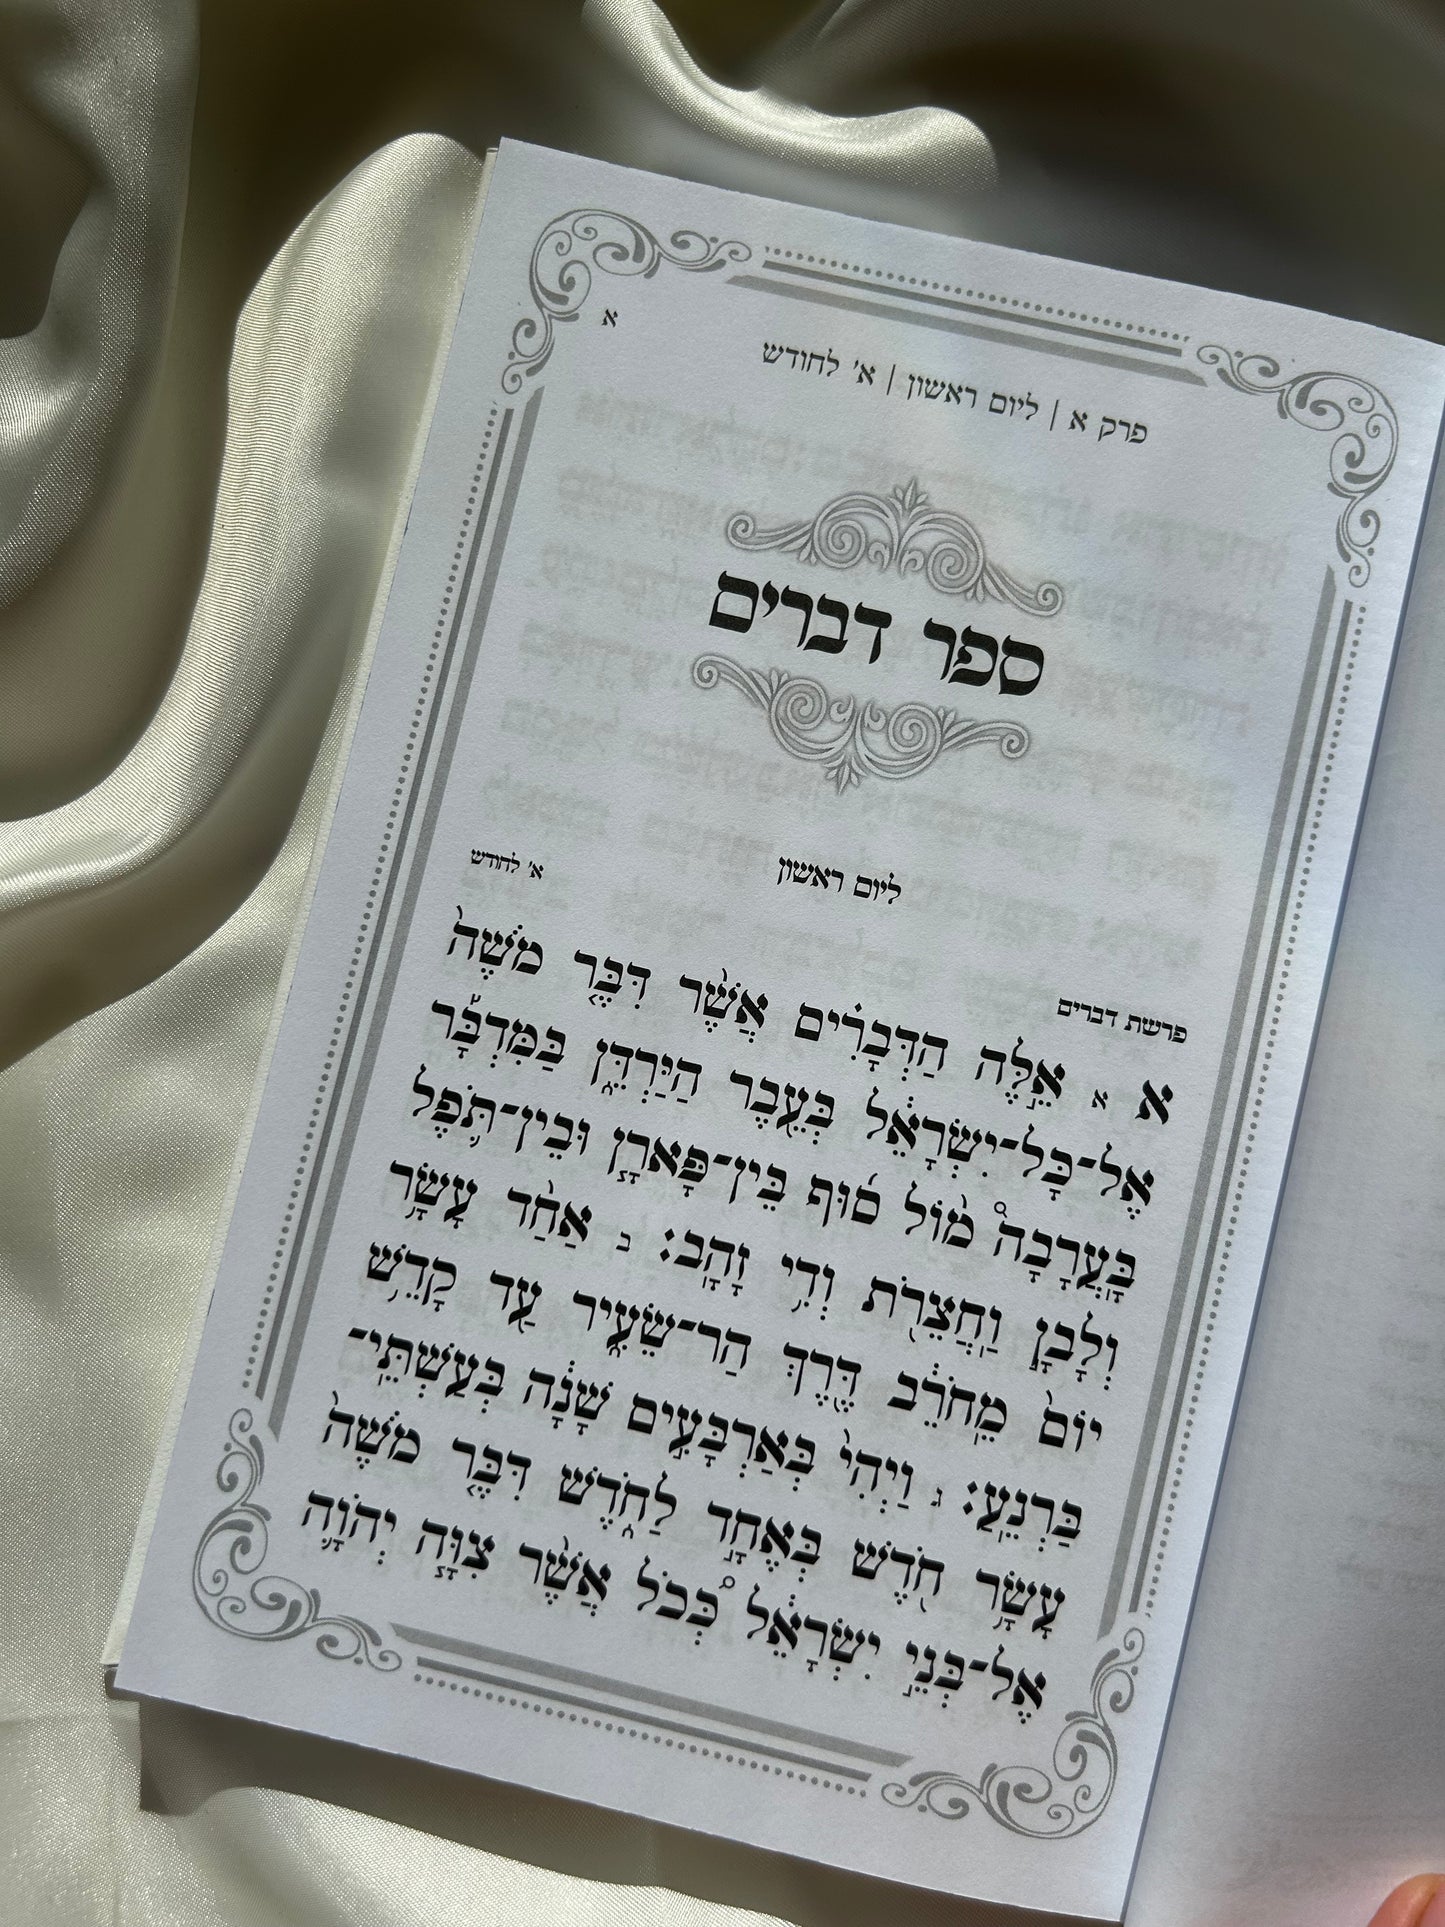 א
פרק א | ליום ראשון | א׳ לחודש
ספר דברים
ליום ראשון
א׳ לחודש
פרשת דברים
א א אֵ֣לֶּה הַדְּבָרִ֗ים אֲשֶׁ֨ר דִּבֶּ֤ר מֹשֶׁה֙
אֶל־כׇּל־יִשְׂרָאֵ֔ל בְּעֵ֖בֶר הַיַּרְדֵּ֑ן בַּמִּדְבָּ֡ר
בָּֽעֲרָבָה֩ מ֨וֹל ס֜וּף בֵּֽין־פָּארָ֧ן וּבֵֽין־תֹּ֛פֶל
וְלָבָ֥ן וַֽחֲצֵרֹ֖ת וְדִ֥י זָהָֽב׃ ב אַחַ֨ד עָשָׂ֥ר
יוֹם֙ מֵֽחֹרֵ֔ב דֶּ֖רֶךְ הַר־שֵׂעִ֑יר עַ֖ד קָדֵ֥שׁ
בַּרְנֵֽעַ׃ ג וַיְהִי֙ בְּאַרְבָּעִ֣ים שָׁנָ֔ה בְּעַשְׁתֵּֽי־
עָשָׂ֥ר חֹ֖דֶשׁ בְּאֶחָ֣ד לַחֹ֑דֶשׁ דִּבֶּ֤ר מֹשֶׁה֙
אֶל־בְּנֵ֣י יִשְׂרָאֵ֔ל כְּ֠כֹל אֲשֶׁ֨ר צִוָּ֧ה יְהֹוָ֛ה